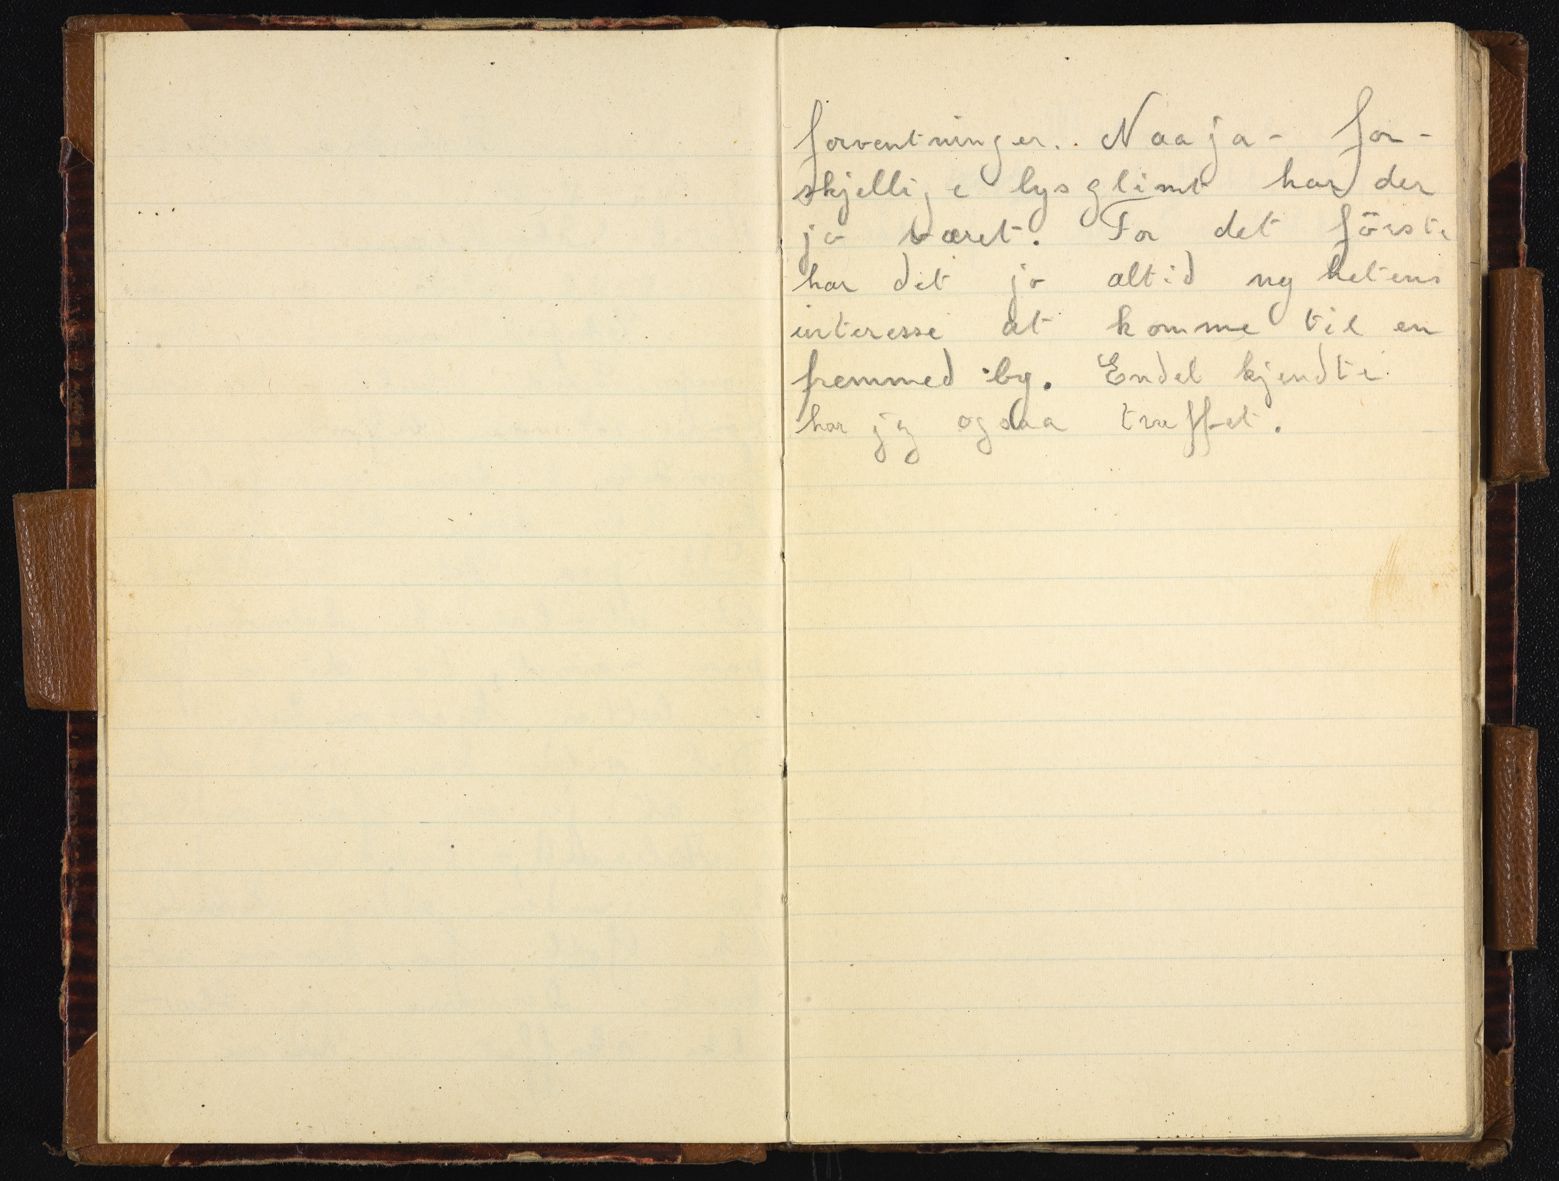 forventninger. Naa ja - for-
skjellige lysglimt har der
jo været. For det förste
har det jo altid nyhetens
interesse at komme til en
fremmed by. Endel kjendte
har jeg ogsaa truffet.